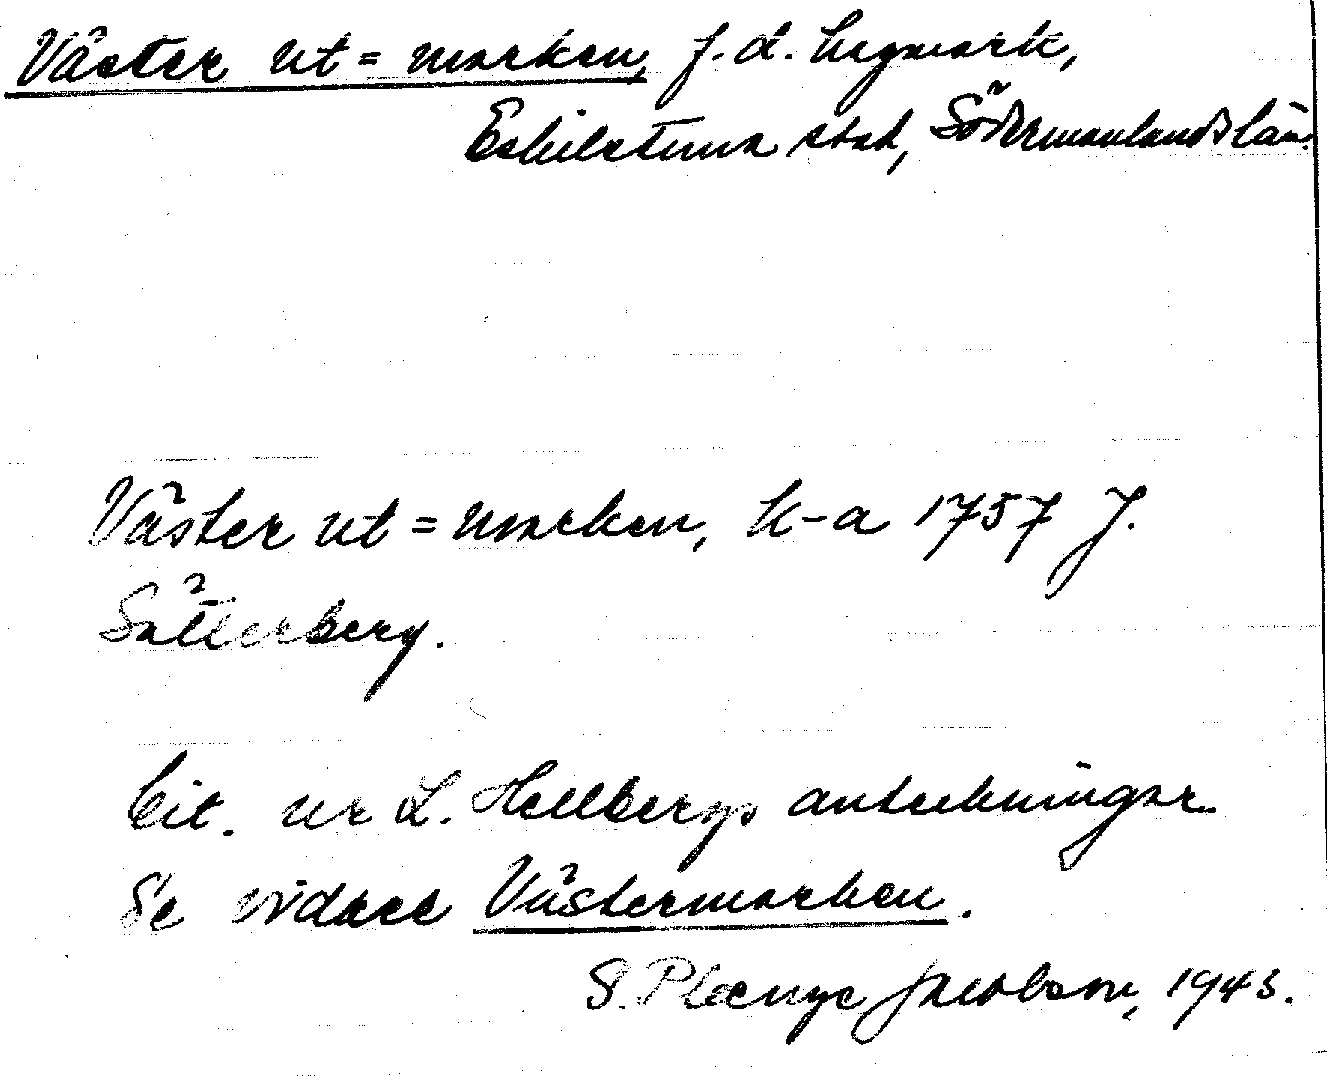 Väster ut = marken, f.d. hagmark,
Eskilstuna stad, Södermanlands län.
Väster ut = marken, k-a 1757 J.
Sätterberg.
Cit. ur L. Hellbergs anteckningar.
Se vidare Västermarken.
S. Plænge Jacobson, 1943.